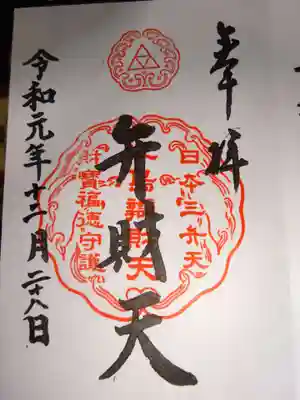 奉拝
日本三弁天
弁財天
島辨財天
財寶福徳守護
令和元年十二月二十八日